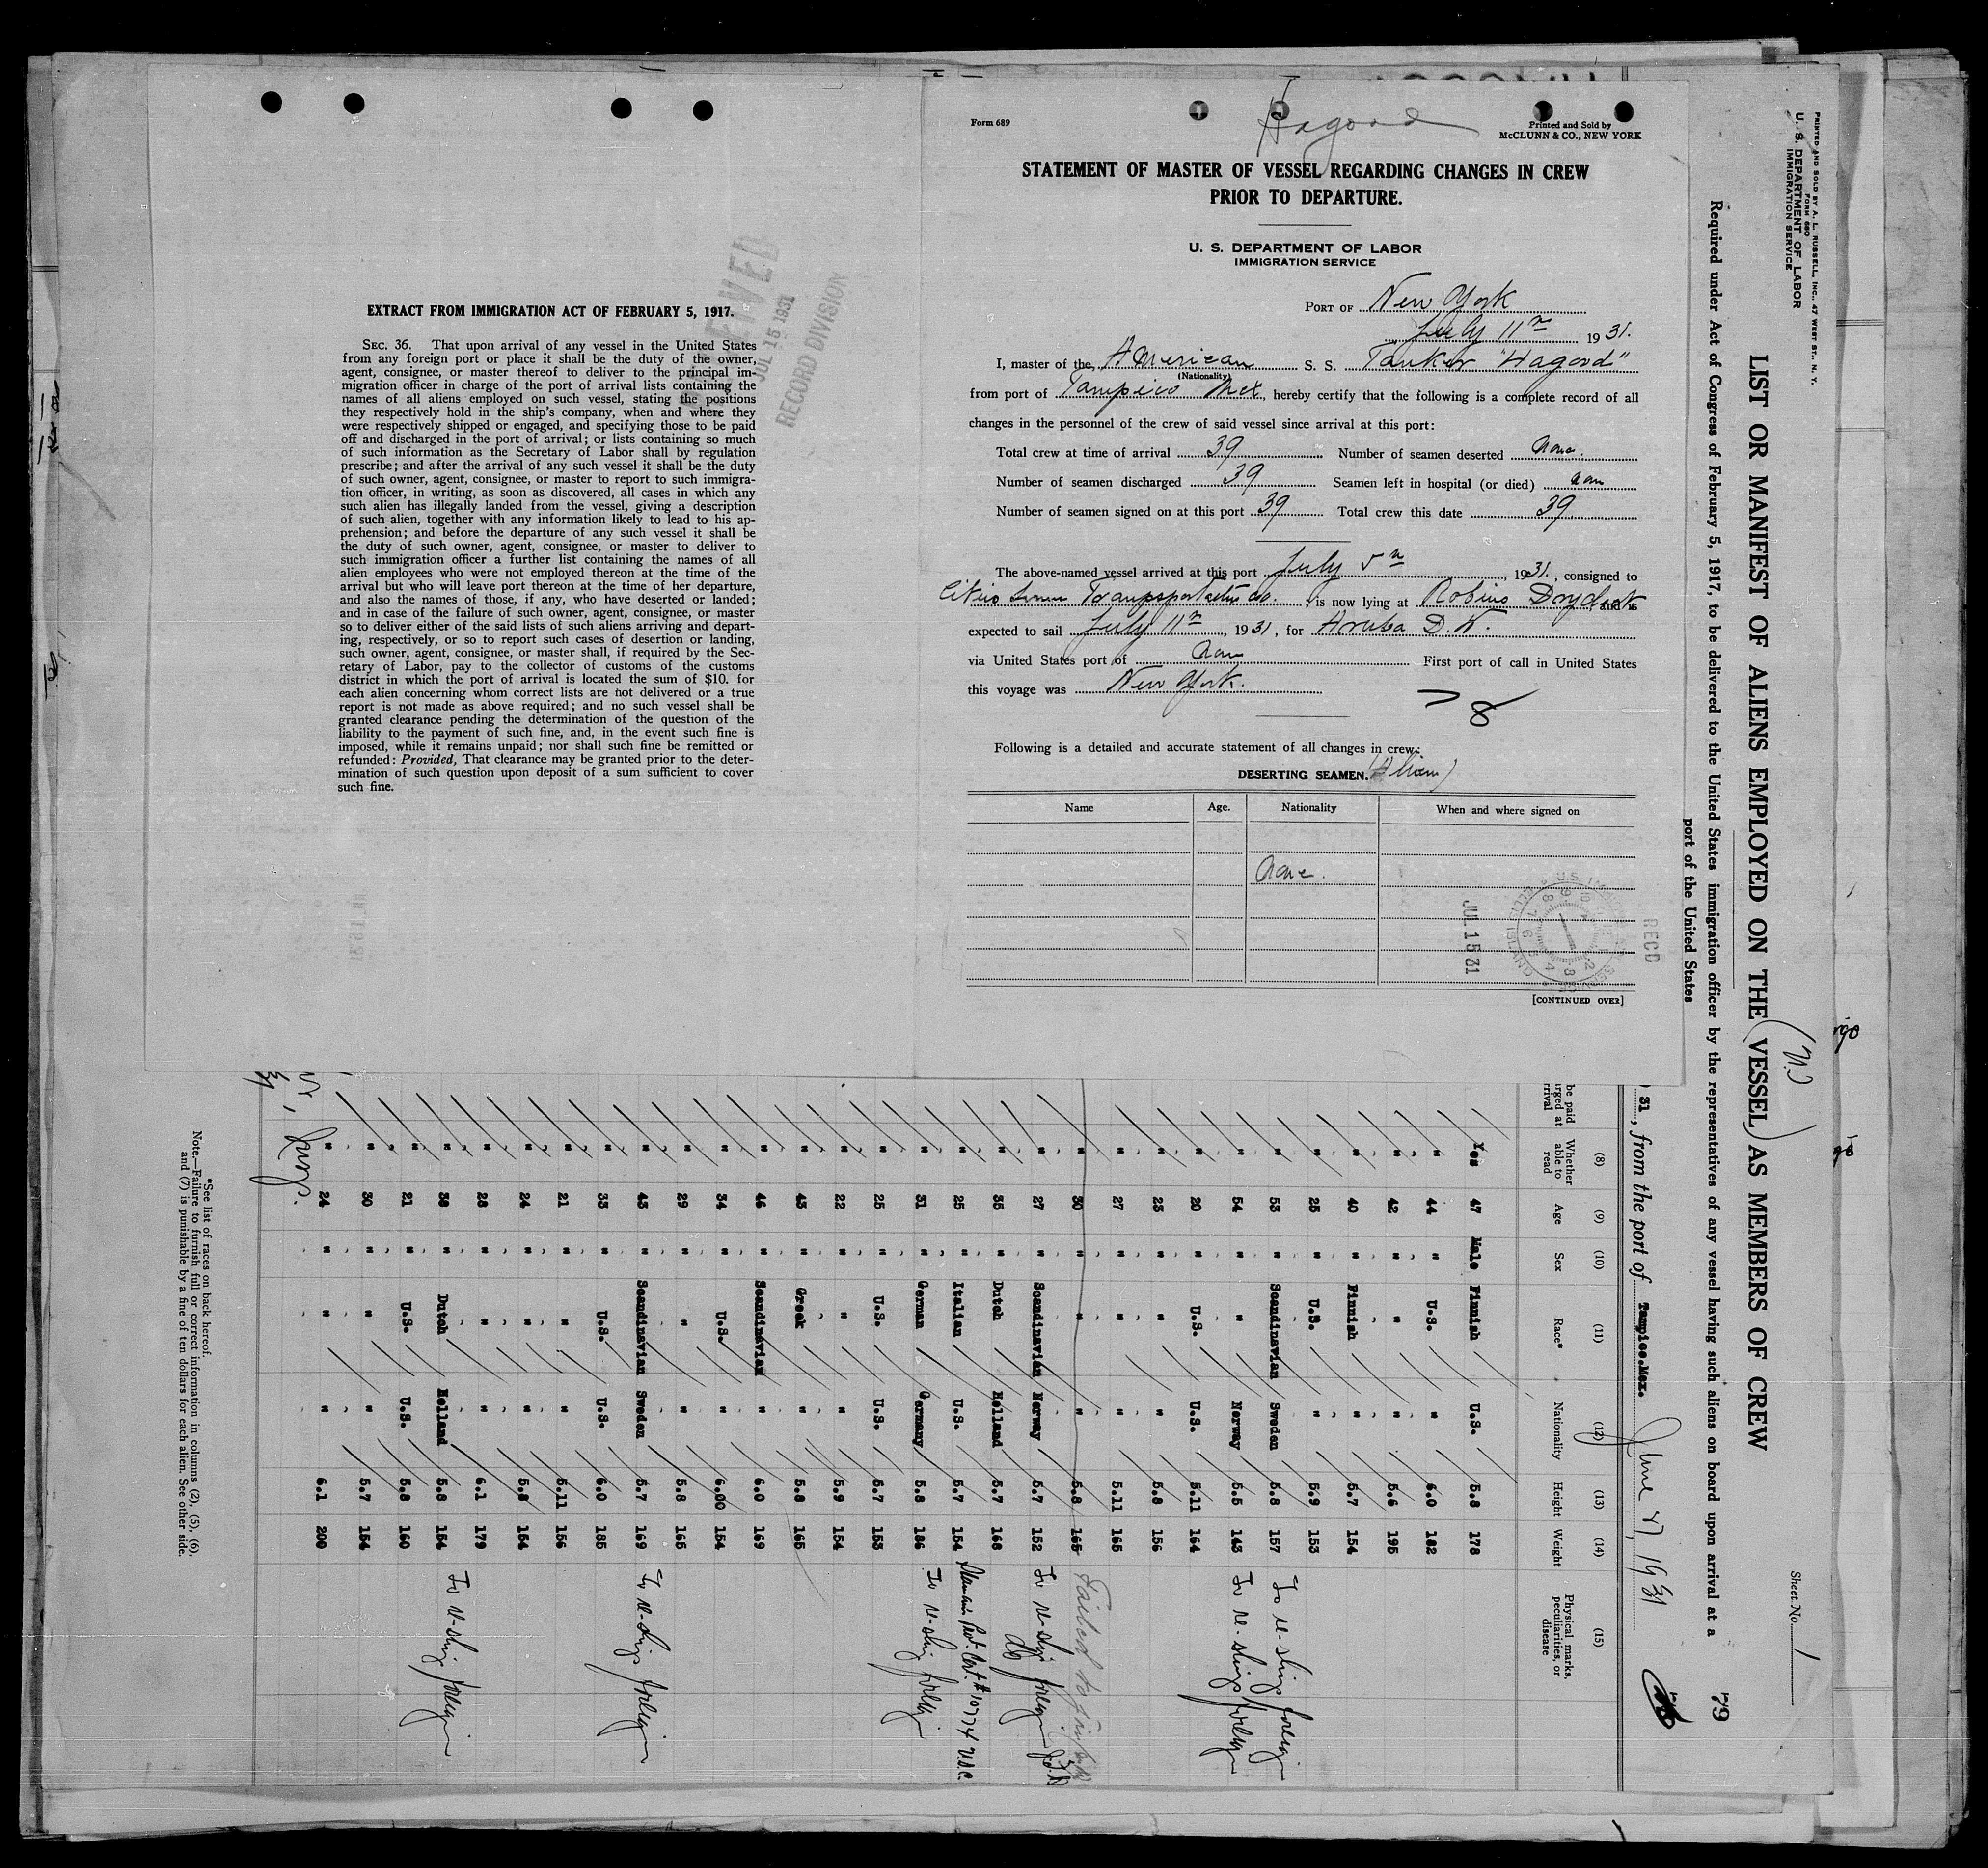 Hagood
Form 689
Printed and Sold by
McCLUNN & CO., NEW YORK
STATEMENT OF MASTER OF VESSEL REGARDING CHANGES IN CREW
PRIOR TO DEPARTURE.
U. S. DEPARTMENT OF LABOR
IMMIGRATION SERVICE
PORT OF New York
July 11th 1931.
I, master of the American S. S. Tanker "Hagood"
(Nationality)
from port of Tampico Mex, hereby certify that the following is a complete record of all
changes in the personnel of the crew of said vessel since arrival at this port:
Total crew at time of arrival 39 Number of seamen deserted None.
Number of seamen discharged 39 Seamen left in hospital (or died)
Number of seamen signed on at this port 39 Total crew this date 39
The above-named vessel arrived at this port July 5th, 1931., consigned to
Transportation Co., is now lying at Robins Drydock and is
expected to sail July 11th, 1931, for Aruba
via United States port of First port of call in United States
this voyage was New York.
78
Following is a detailed and accurate statement of all changes in crew:
DESERTING SEAMEN. (Alien)
Name Age. Nationality When and where signed on
None.
JUL 15 31
RECD
[CONTINUED OVER]
EXTRACT FROM IMMIGRATION ACT OF FEBRUARY 5, 1917.
SEC. 36. That upon arrival of any vessel in the United States
from any foreign port or place it shall be the duty of the owner,
agent, consignee, or master thereof to deliver to the principal im-
migration officer in charge of the port of arrival lists containing the
names of all aliens employed on such vessel, stating the positions
they respectively hold in the ship's company, when and where they
were respectively shipped or engaged, and specifying those to be paid
off and discharged in the port of arrival; or lists containing so much
of such information as the Secretary of Labor shall by regulation
prescribe; and after the arrival of any such vessel it shall be the duty
of such owner, agent, consignee, or master to report to such immigra-
tion officer, in writing, as soon as discovered, all cases in which any
such alien has illegally landed from the vessel, giving a description
of such alien, together with any information likely to lead to his ap-
prehension; and before the departure of any such vessel it shall be
the duty of such owner, agent, consignee, or master to deliver to
such immigration officer a further list containing the names of all
alien employees who were not employed thereon at the time of the
arrival but who will leave port thereon at the time of her departure,
and also the names of those, if any, who have deserted or landed;
and in case of the failure of such owner, agent, consignee, or master
so to deliver either of the said lists of such aliens arriving and depart-
ing, respectively, or so to report such cases of desertion or landing,
such owner, agent, consignee, or master shall, if required by the Sec-
retary of Labor, pay to the collector of customs of the customs
district in which the port of arrival is located the sum of $10. for
each alien concerning whom correct lists are not delivered or a true
report is not made as above required; and no such vessel shall be
granted clearance pending the determination of the question of the
liability to the payment of such fine, and, in the event such fine is
imposed, while it remains unpaid; nor shall such fine be remitted or
refunded: Provided, That clearance may be granted prior to the deter-
mination of such question upon deposit of a sum sufficient to cover
such fine.
JUL 15 1931
RECORD DIVISION
PRINTED AND SOLD BY A. L. RUSSELL, INC., 47 WEST ST., N. Y.
FORM 680
U. S. DEPARTMENT OF LABOR
IMMIGRATION SERVICE
Sheet No. 1
LIST OR MANIFEST OF ALIENS EMPLOYED ON THE VESSEL AS MEMBERS OF CREW
79
Required under Act of Congress of February 5, 1917, to be delivered to the United States immigration officer by the representatives of any vessel having such aliens on board upon arrival at a
port of the United States
31, from the port of Tampico.Mex. June 27, 1931
(8) (9) (10) (11) (12) (13) (14) (15)
Whether able to read Age Sex Race* Nationality Height Weight Physical marks, peculiarities, or disease
Yes 47 Male Finnish U.S. 5.8 178
" 44 " U.S. " 6.0 182
" 42 " " " 5.6 195
" 40 " Finnish " 5.7 154
" 25 " U.S. " 5.9 153
" 53 " Scandinavian Sweden 5.8 157 To re-ship foreign
" 54 " " Norway 5.5 143 To re-ship foreign
" 20 " U.S. U.S. 5.11 164
" 23 " " " 5.8 156
" 27 " " " 5.11 165
" 30 " " " 5.8 165 Failed to join
" 27 " Scandinavian Norway 5.7 152 To re-ship foreign
" 35 " Dutch Holland 5.7 168 do
" 25 " Italian U.S. 5.7 154
" 31 " German Germany 5.8 186 To re-ship foreign
" 25 " U.S. U.S. 5.7 153
" 22 " " " 5.9 154
" 43 " Greek " 5.8 165
" 46 " Scandinavian " 6.0 169
" 34 " U.S. " 6.00 154
" 29 " " " 5.8 165
" 43 " Scandinavian Sweden 5.7 169 To re-ship foreign
" 33 " U.S. U.S. 6.0 185
" 21 " " " 5.11 156
" 24 " " " 5.8 154
" 28 " " " 6.1 179
" 38 " Dutch Holland 5.8 154 To re-ship foreign
" 21 " U.S. U.S. 5.8 160
" 30 " " " 5.7 154
" 24 " " " 6.1 200
*See list of races on back hereof.
Note.—Failure to furnish full or correct information in columns (2), (5), (6),
and (7) is punishable by a fine of ten dollars for each alien. See other side.